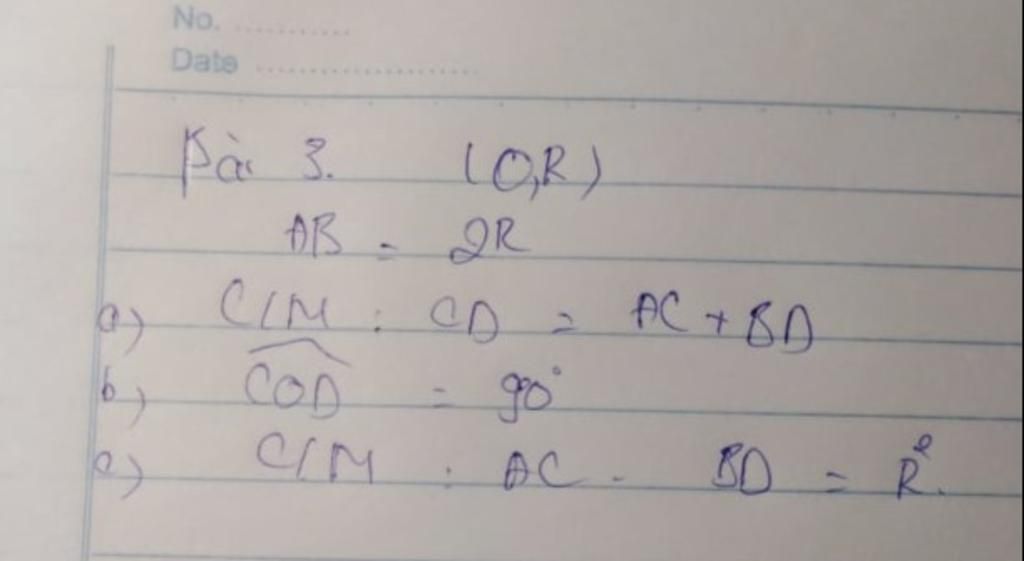 No. ..........
Date ....................
Bài 3. (O,R)
AB = 2R
a) C/M : CD = AC + BD
b) \widehat{COD} = 90°
c) C/M : AC . BD = R².